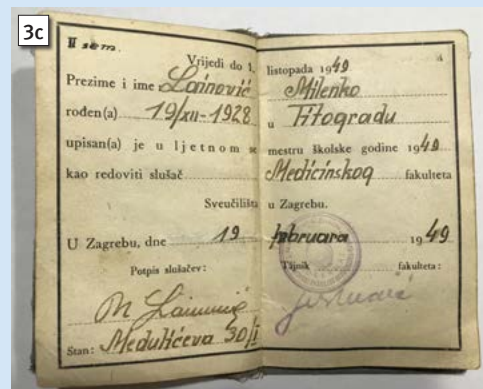 3c
II sem.
Vrijedi do 1. listopada 1949
Prezime i ime Lainović Milenko
rođen(a) 19/XII-1928 u Titogradu
upisan(a) je u ljetnom se mestru školske godine 1949
kao redoviti slušač Medicinskog fakulteta
Sveučilišta u Zagrebu.
U Zagrebu, dne 19 februara 1949
Potpis slušačev: Tajnik fakulteta:
M Lainović
Stan: Medulićeva 30/I